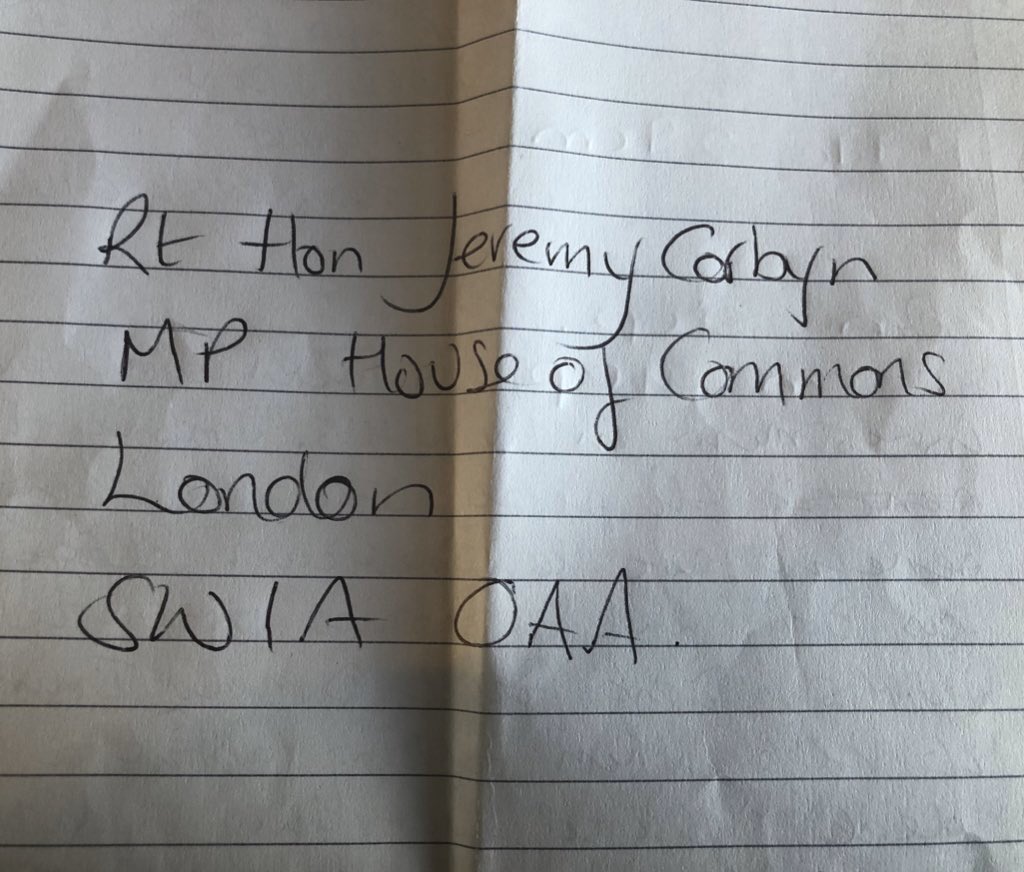 Rt Hon Jeremy Corbyn
MP House of Commons
London
SW1A 0AA.